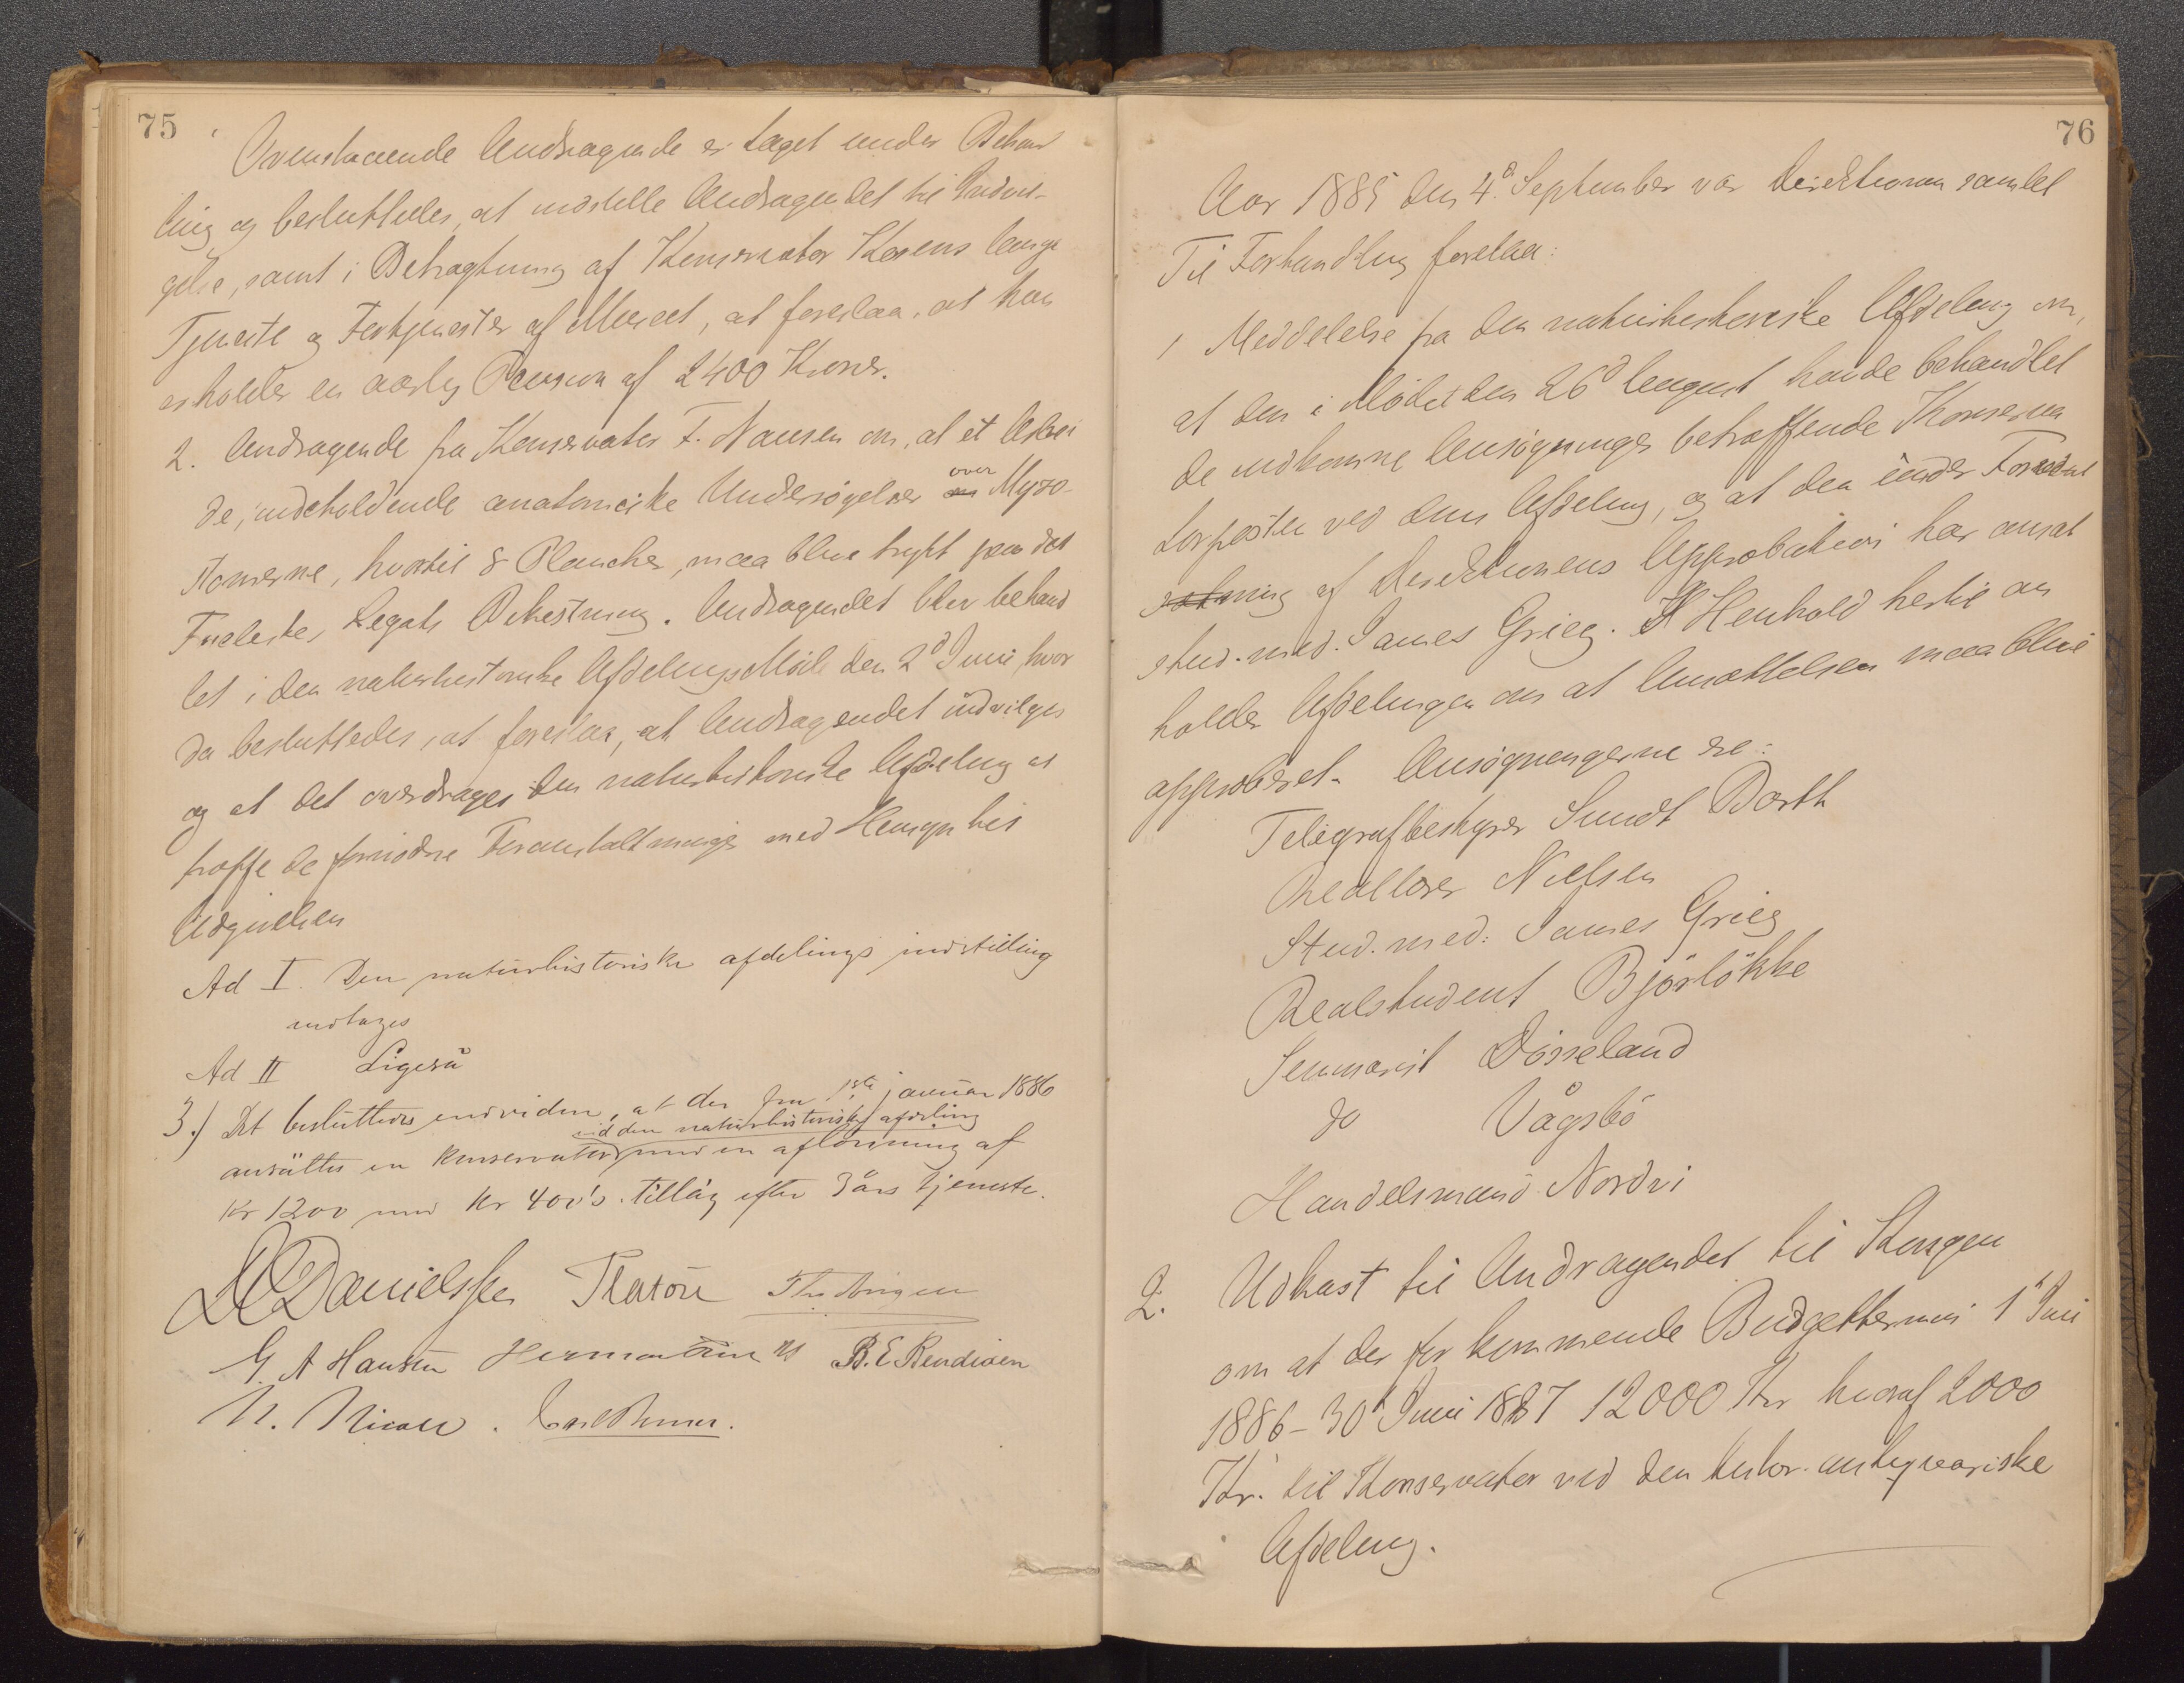 75
Ovenstaaende Andragende er taget under Behand
ling og besluttedes, at indstille Andragendet til Indvil-
gelse, samt i Betragtning af Konservator Korens lange
Tjeneste og Fortjenester af Museet, at foreslaa, at han
erholder en aarlig Pension af 2400 Kroner.
2. Andragende fra Konservator F. Nansen om, at et Arbei
de, indeholdende anatomiske Undersøgelser om over Myzo-
stomerne, hvortil 8 Plancher, maa blive trykt paa det
Legats Bekostning. Andragendet blev behand
let i den naturhistoriske Afdelings Møde den 2d Juni, hvor
da besluttedes, at foreslaa, at Andragendet indvilges
og at det overdrages den naturhistoriske Afdeling at
træffe de fornødne Foranstaltninger med Hensyn til
Udgivelsen
Ad I. Den naturhistoriske afdelings indstilling
indtages
Ad II Ligeså
3.) Det besluttedes endvidere, at der fra 1ste januar 1886
ved den naturhistoriske afdeling
ansättes en konservator med en aflönning af
Kr 1200 med Kr 400's tillæg efter 3 års tjeneste.
DC Danielssen
G. A Hansen B. E. Bendixen
76
Aar 1885 den 4d September var Direktionen samlet
Til Forhandling forelaa:
1 Meddelelse fra den naturhistoriske Afdeling om,
at den i Mødet den 26d August havde behandlet
de indkomne Ansøgninger betræffende Konserva
torposten ved denne Afdeling, og at den under Forudsæt
ning af Direktionens Approbation har ansat
stud. med. James Grieg. I Henhold hertil an
holder Afdelingen om at Ansættelsen maa blive
approberet. Ansøgningerne ere:
Telegrafbestyrer Sundt Barth
Reallærer Nielsen
Stud. med: James Grieg
Realstudent Bjørløkke
Seminarist Dösseland
do Vågsbö
Handelsmand Nordvi
2. Udkast til Andragendet til Kongen
om at der for kommende Budgettermin 1 Juli
1886 - 30 Juni 1887 12000 Kr hvoraf 2000
Kr. til Konservator ved den histor. antiqvariske
Afdeling.